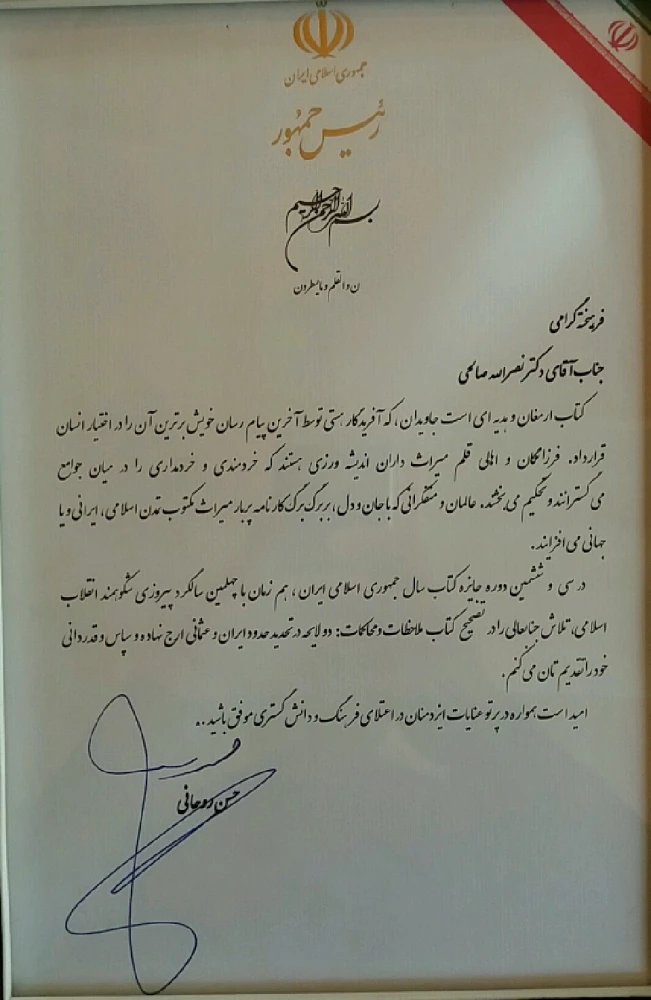 جمهوری اسلامی ایران
رئیس جمهور
بسم الله الرحمن الرحیم
ن والقلم و ما یسطرون
فرهیختۀ گرامی
جناب آقای دکتر نصرالله صالحی
کتاب ارمغان و هدیه ای است جاویدان، که آفریدگار هستی توسط آخرین پیام رسان خویش برترین آن را در اختیار انسان
قرار داد. فرزانگان و اهالی قلم میراث داران اندیشه ورزی هستند که خردمندی و خردمداری را در میان جوامع
می گسترانند و تحکیم می بخشند. عالمان و متفکرانی که با جان و دل، بر برگ برگ کارنامه پربار میراث مکتوب تمدن اسلامی، ایرانی و یا
جهانی می افزایند.
در سی و ششمین دوره جایزه کتاب سال جمهوری اسلامی ایران، هم زمان با چهلمین سالگرد پیروزی شکوهمند انقلاب
اسلامی، تلاش جنابعالی را در تصحیح کتاب ملاحظات و محاکمات: دو لایحه در تحدید حدود ایران و عثمانی ارج نهاده و سپاس و قدردانی
خود را تقدیم تان می کنم.
امید است همواره در پرتو عنایات ایزد منان در اعتلای فرهنگ و دانش گستری موفق باشید..
حسن روحانی